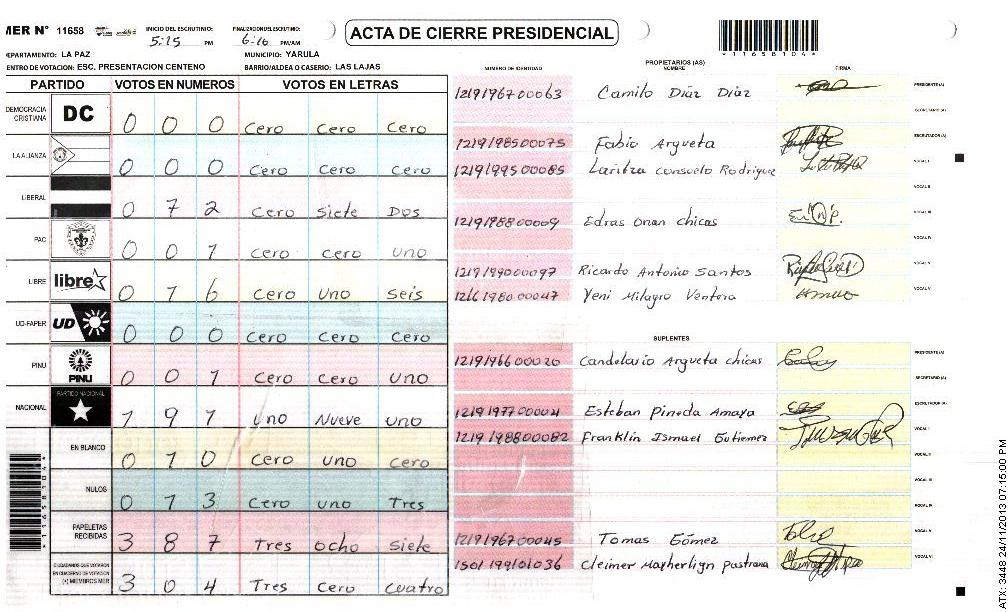 MER N° 11658
INICIO DEL ESCRUTINIO:
5:15 PM
FINALIZACION DEL ESCRUTINIO:
6:10 PM/AM
ACTA DE CIERRE PRESIDENCIAL
*11658104*
DEPARTAMENTO: LA PAZ
MUNICIPIO: YARULA
CENTRO DE VOTACION: ESC. PRESENTACION CENTENO
BARRIO/ALDEA O CASERIO: LAS LAJAS
PARTIDO VOTOS EN NUMEROS VOTOS EN LETRAS
NUMERO DE IDENTIDAD
PROPIETARIOS (AS)
NOMBRE
FIRMA
DEMOCRACIA CRISTIANA DC 0 0 0 Cero Cero Cero
LA ALIANZA 0 0 0 Cero Cero Cero
LIBERAL 0 7 2 Cero Siete Dos
PAC 0 0 1 Cero Cero Uno
LIBRE libre 0 1 6 Cero Uno Seis
UD-FAPER UD 0 0 0 Cero Cero Cero
PINU PINU 0 0 1 Cero Cero Uno
NACIONAL PARTIDO NACIONAL 1 9 1 Uno Nueve Uno
EN BLANCO 0 1 0 Cero Uno Cero
NULOS 0 1 3 Cero Uno Tres
PAPELETAS RECIBIDAS 3 8 7 Tres Ocho Siete
CIUDADANOS QUE VOTARON EN CUADERNO DE VOTACION (+) MIEMBROS MER 3 0 4 Tres Cero Cuatro
1219196700063 Camilo Díaz Díaz PRESIDENTE(A)
SECRETARIO (A)
1219198500075 Fabio Argueta ESCRUTADOR (A)
1219199500085 Laritza Consuelo Rodriguez VOCAL I
VOCAL II
1219198800009 Edras Onan chicas VOCAL III
VOCAL IV
1219199000097 Ricardo Antonio Santos VOCAL V
1216198000047 Yeni Milagro Ventora VOCAL VI
SUPLENTES
1219196600020 Candelario Argueta chicas PRESIDENTE (A)
SECRETARIO (A)
1219197700021 Esteban Pineda Amaya ESCRUTADOR (A)
1219198800082 Franklin Ismael Gutierrez VOCAL I
VOCAL II
VOCAL III
VOCAL IV
1219196700045 Tomas Gómez VOCAL V
1501199101036 Cleimer Mayherlign Pastrana VOCAL VI
*11658104*
ATX: 3448 24/11/2013 07:15:00 PM